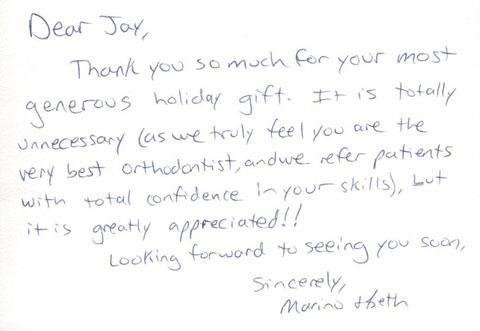 Dear Jay,
Thank you so much for your most
generous holiday gift. It is totally
unnecessary (as we truly feel you are the
very best orthodontist, and we refer patients
with total confidence in your skills), but
it is greatly appreciated!!
Looking forward to seeing you soon,
Sincerely,
Marino